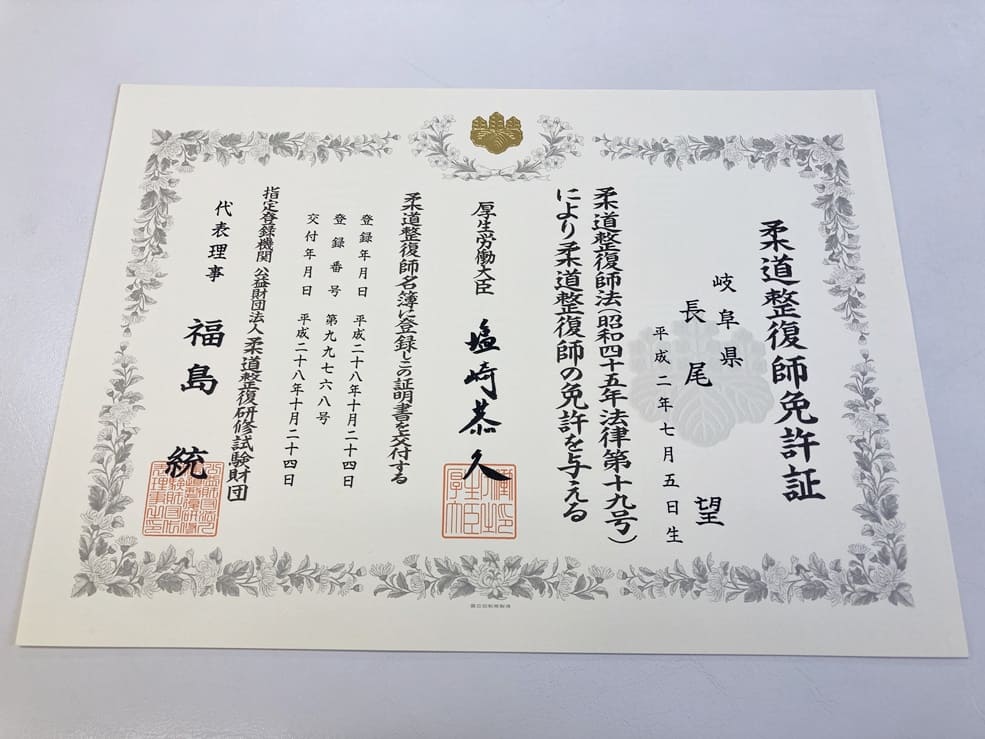 柔道整復師免許証
岐阜県
長尾望
平成二年七月五日生
柔道整復師法(昭和四十五年法律第十九号)
により柔道整復師の免許を与える
厚生労働大臣 塩崎恭久
柔道整復師名簿に登録しこの証明書を交付する
登録年月日 平成二十八年十月二十四日
登録番号 第九九七六八号
交付年月日 平成二十八年十月二十四日
指定登録機関 公益財団法人柔道整復研修試験財団
代表理事 福島統